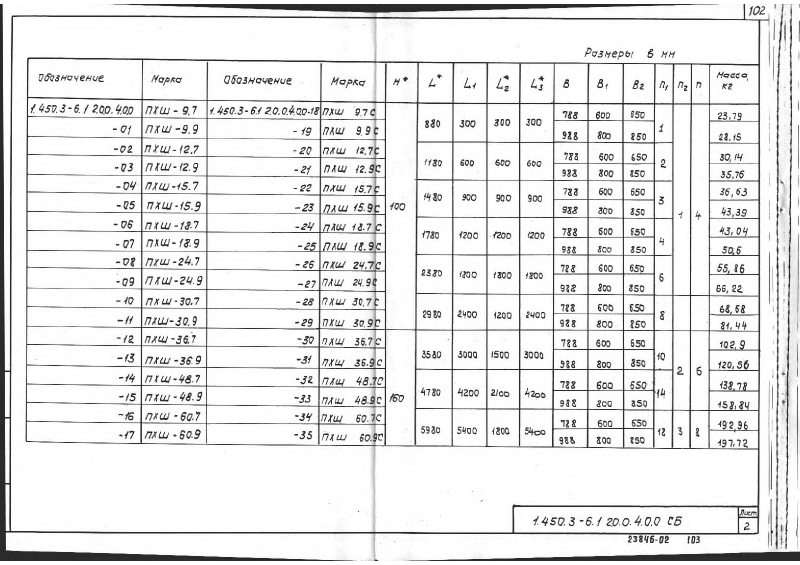 102
Размеры в мм
Обозначение Марка Обозначение Марка H* L* L1 L2* L3* B B1 B2 n1 n2 n Масса, кг
1.450.3-6.1 2.0.0.4.0.0 ПХШ-9.7 1.450.3-6.1 2.0.0.4.0.0-18 ПХШ 9.7С 100 880 300 300 300 788 600 650 1 1 4 23,79
-01 ПХШ-9.9 -19 ПХШ 9.9С 988 800 850 28,15
-02 ПХШ-12.7 -20 ПХШ 12.7С 1180 600 600 600 788 600 650 2 30,14
-03 ПХШ-12.9 -21 ПХШ 12.9С 988 800 850 35,76
-04 ПХШ-15.7 -22 ПХШ 15.7С 1480 900 900 900 788 600 650 3 36,63
-05 ПХШ-15.9 -23 ПХШ 15.9С 988 800 850 43,39
-06 ПХШ-18.7 -24 ПХШ 18.7С 1780 1200 1200 1200 788 600 650 4 43,04
-07 ПХШ-18.9 -25 ПХШ 18.9С 988 800 850 50,6
-08 ПХШ-24.7 -26 ПХШ 24.7С 2380 1800 1800 1800 788 600 650 6 55,86
-09 ПХШ-24.9 -27 ПХШ 24.9С 988 800 850 66,22
-10 ПХШ-30.7 -28 ПХШ 30.7С 2980 2400 1200 2400 788 600 650 8 68,68
-11 ПХШ-30.9 -29 ПХШ 30.9С 988 800 850 81,44
-12 ПХШ-36.7 -30 ПХШ 36.7С 160 3580 3000 1500 3000 788 600 650 10 2 6 102,9
-13 ПХШ-36.9 -31 ПХШ 36.9С 988 800 850 120,56
-14 ПХШ-48.7 -32 ПХШ 48.7С 4780 4200 2100 4200 788 600 650 14 138,78
-15 ПХШ-48.9 -33 ПХШ 48.9С 988 800 850 158,84
-16 ПХШ-60.7 -34 ПХШ 60.7С 5980 5400 1800 5400 788 600 650 18 3 8 192,96
-17 ПХШ-60.9 -35 ПХШ 60.9С 988 800 850 197,72
1.450.3-6.1 2.0.0.4.0.0 СБ Лист
2
23846-02 103